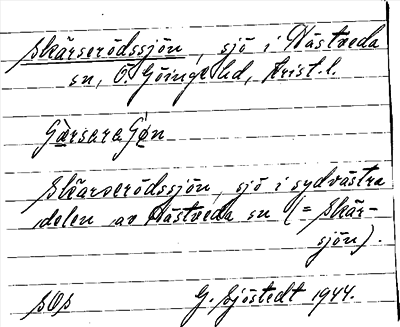 Skärserödssjön, sjö i Hästveda
sn, Ö. Göinge hd, Krist. l.
Skärserödssjön, sjö i sydvästra
delen av Hästveda sn (= Skär-
sjön).
G. Sjöstedt 1944.